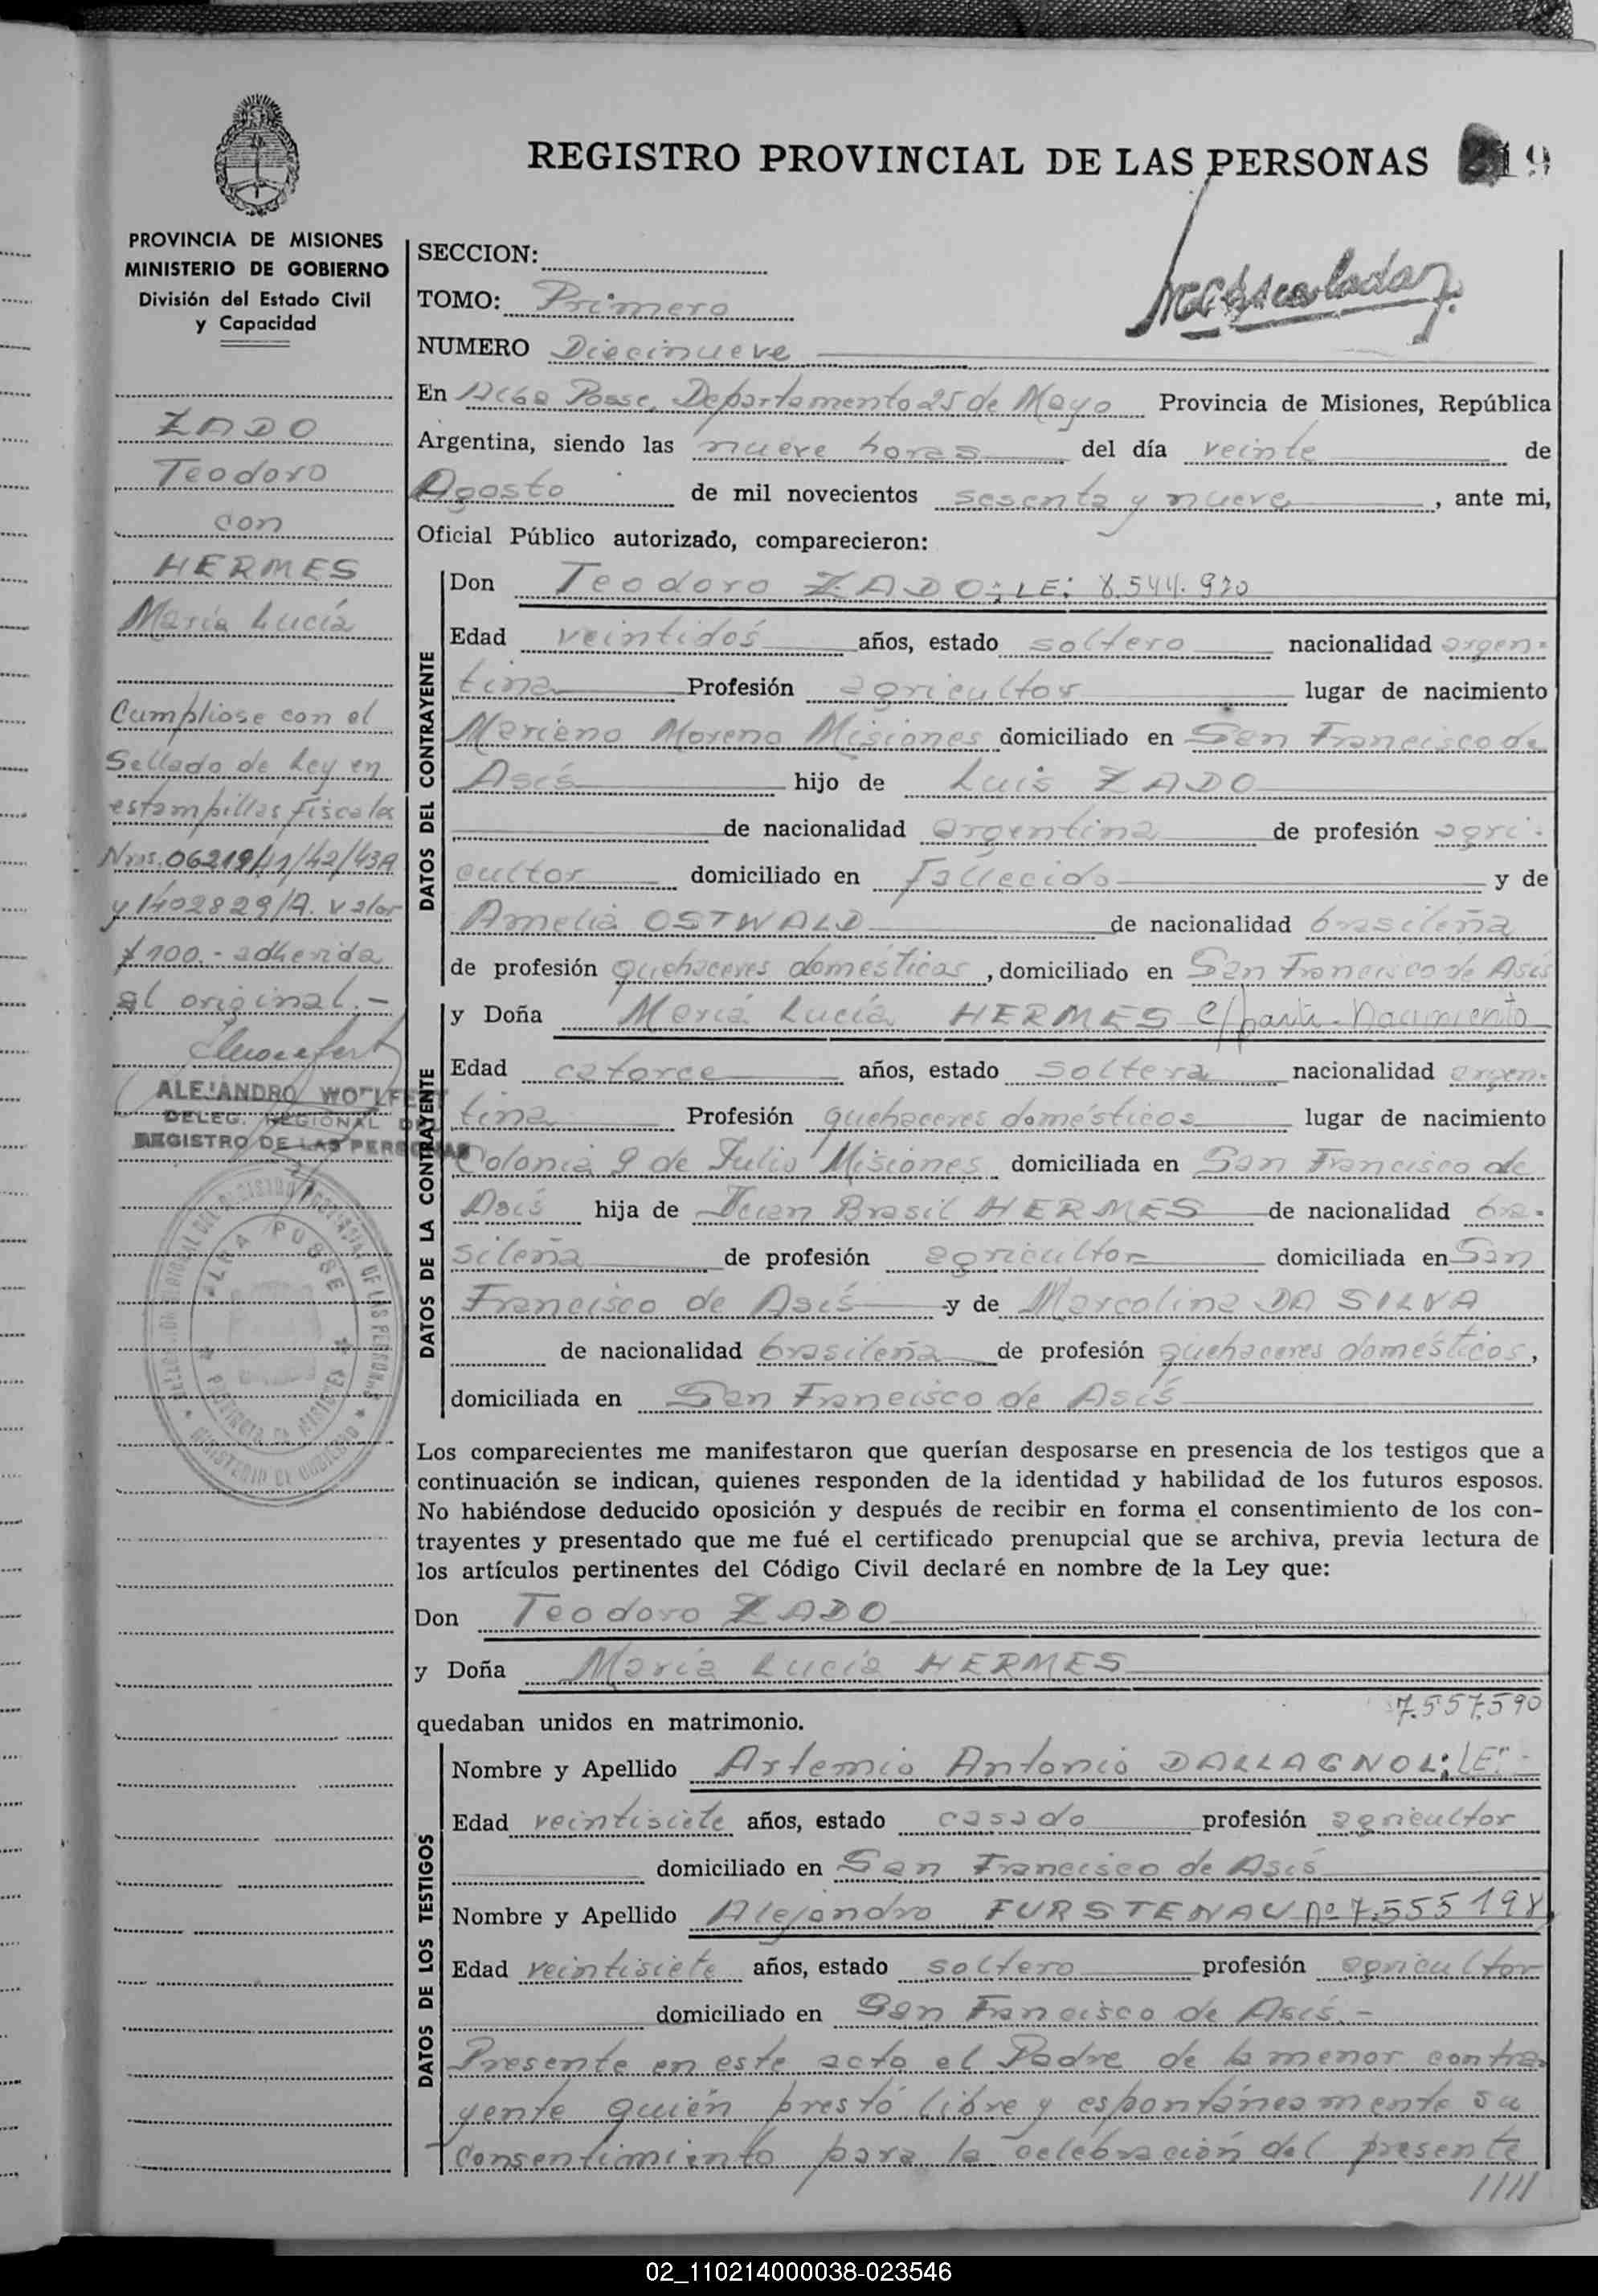 REGISTRO PROVINCIAL DE LAS PERSONAS 19
PROVINCIA DE MISIONES
MINISTERIO DE GOBIERNO
División del Estado Civil
y Capacidad
ZADO
Teodoro
con
HERMES
María Lucía
Cumpliose con el
Sellado de Ley en
estampillas fiscales
Nros. 06219/41/42/43A
y 1402829/A. valor
$ 100.- adherida
al original.-
ALEJANDRO WOELFERT
DELEG. REGIONAL DEL
REGISTRO DE LAS PERSONAS
ALBA POSSE
PROVINCIA DE MISIONES
MINISTERIO DE GOBIERNO
SECCION:
TOMO: Primero
NUMERO Diecinueve
En Alba Posse, Departamento 25 de Mayo Provincia de Misiones, República
Argentina, siendo las nueve horas del día veinte de
Agosto de mil novecientos sesenta y nueve, ante mi,
Oficial Público autorizado, comparecieron:
DATOS DEL CONTRAYENTE
Don Teodoro ZADO; LE: 8.544.920
Edad veintidós años, estado soltero nacionalidad argen-
tina Profesión agricultor lugar de nacimiento
Mariano Moreno Misiones domiciliado en San Francisco de
Asís hijo de Luis ZADO
de nacionalidad argentina de profesión agri-
cultor domiciliado en fallecido y de
Amelia OSTWALD de nacionalidad brasileña
de profesión quehaceres domésticos, domiciliado en San Francisco de Asís
DATOS DE LA CONTRAYENTE
y Doña María Lucía HERMES c/parti. Nacimiento
Edad catorce años, estado soltera nacionalidad argen-
tina Profesión quehaceres domésticos lugar de nacimiento
Colonia 9 de Julio Misiones domiciliada en San Francisco de
Asís hija de Juan Brasil HERMES de nacionalidad bra-
sileña de profesión agricultor domiciliada en San
Francisco de Asís y de Marcolina DA SILVA
de nacionalidad brasileña de profesión quehaceres domésticos,
domiciliada en San Francisco de Asís
Los comparecientes me manifestaron que querían desposarse en presencia de los testigos que a
continuación se indican, quienes responden de la identidad y habilidad de los futuros esposos.
No habiéndose deducido oposición y después de recibir en forma el consentimiento de los con-
trayentes y presentado que me fué el certificado prenupcial que se archiva, previa lectura de
los artículos pertinentes del Código Civil declaré en nombre de la Ley que:
Don Teodoro ZADO
y Doña María Lucía HERMES
quedaban unidos en matrimonio. 7.557.590
DATOS DE LOS TESTIGOS
Nombre y Apellido Artemio Antonio DALLAGNOL; LE:-
Edad veintisiete años, estado casado profesión agricultor
domiciliado en San Francisco de Asís
Nombre y Apellido Alejandro FURSTENAU nº 7.555198
Edad veintisiete años, estado soltero profesión agricultor
domiciliado en San Francisco de Asís.-
Presente en este acto el Padre de la menor contra-
yente quién prestó libre y espontáneamente su
consentimiento para la celebración del presente
////
02_110214000038-023546